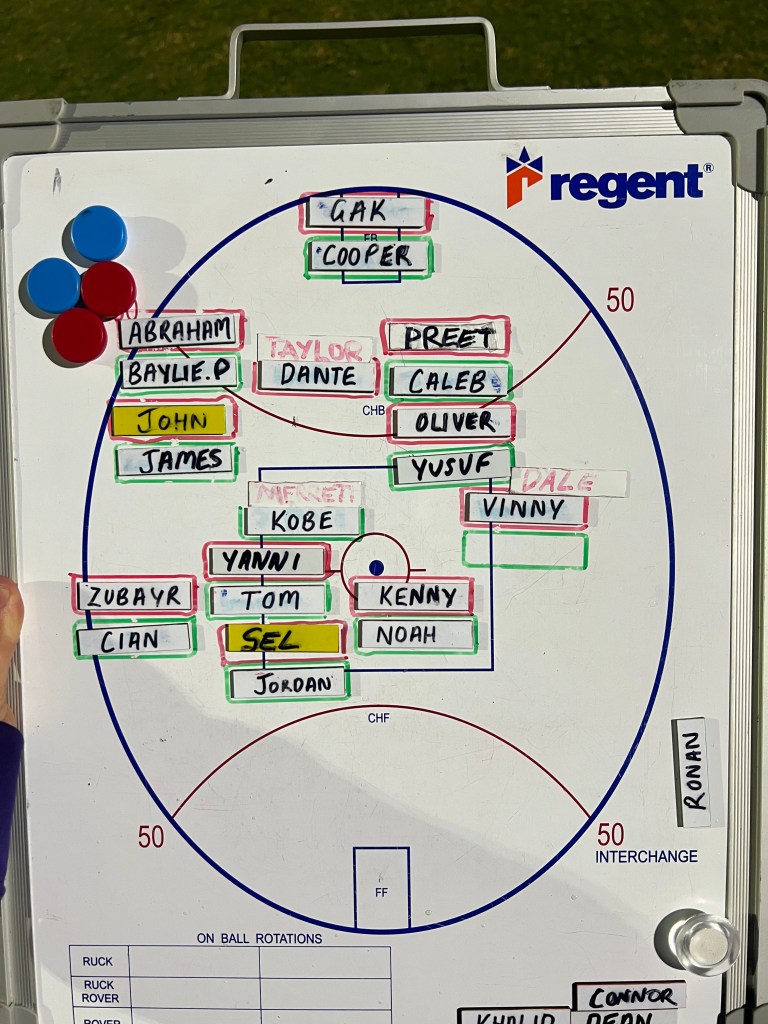 regent®
GAK
FB
COOPER
50
ABRAHAM
TAYLOR
PREET
BAYLIE.P
DANTE
CALEB
JOHN
CHB
OLIVER
JAMES
YUSUF
DALE
KOBE
VINNY
YANNI
ZUBAYR
TOM
KENNY
CIAN
SEL
NOAH
JORDAN
CHF
RONAN
50
50
INTERCHANGE
FF
ON BALL ROTATIONS
RUCK
RUCK
ROVER
CONNOR
ROVER
KHALID
DEAN